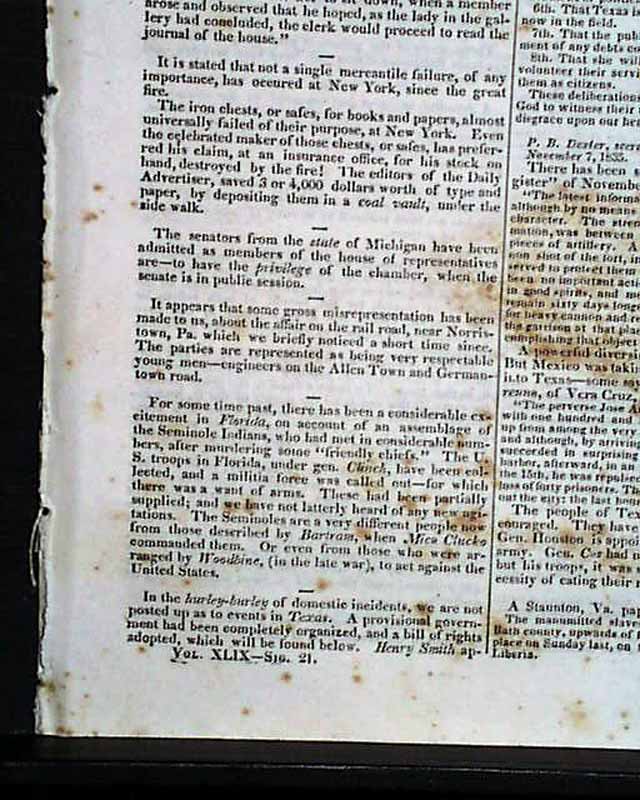 arose and observed that he hoped, as the lady in the gal-
lery had concluded, the clerk would proceed to read the
journal of the house."
It is stated that not a single mercantile failure, of any
importance, has occured at New York, since the great
fire.
The iron chests, or safes, for books and papers, almost
universally failed of their purpose, at New York. Even
the celebrated maker of those chests, or safes, has prefer-
red his claim, at an insurance office, for his stock on
hand, destroyed by the fire! The editors of the Daily
Advertiser, saved 3 or 4,000 dollars worth of type and
paper, by depositing them in a coal vault, under the
side walk.
The senators from the state of Michigan have been
admitted as members of the house of representatives
are—to have the privilege of the chamber, when the
senate is in public session.
It appears that some gross misrepresentation has been
made to us, about the affair on the rail road, near Norris-
town, Pa. which we briefly noticed a short time since.
The parties are represented as being very respectable
young men—engineers on the Allen Town and German-
town road.
For some time past, there has been a considerable ex-
citement in Florida, on account of an assemblage of
the Seminole Indians, who had met in considerable num-
bers, after murdering some "friendly chiefs." The U.
S. troops in Florida, under gen. Clinch, have been col-
lected, and a militia force was called out—for which
there was a want of arms. These had been partially
supplied; and we have not latterly heard of any new agi-
tations. The Seminoles are a very different people now
from those described by Bartram, when Mico Clucko
commanded them. Or even from those who were ar-
ranged by Woodbine, (in the late war), to act against the
United States.
In the hurley-burley of domestic incidents, we are not
posted up as to events in Texas. A provisional govern-
ment had been completely organized, and a bill of rights
adopted, which will be found below. Henry Smith ap-
VOL. XLIX—SIG. 21.
6th. That Texas is
now in the field.
7th. That the publ
ment of any debts co
8th. That she will
volunteer their serv
them as citizens.
These deliberation
God to witness their
disgrace upon our hea
P. B. Dexter, secre
November 7, 1835.
There has been s
gister" of Novemb
"The latest informa
although by no means
character. The stren
nation, was between
pieces of artillery. A
non shot of the fort, in
served to protect them
been no important acti
in good spirits, and mo
remain sixty days longe
for heavy cannon and re
the garrison at that plac
complishing that object
A powerful divers
But Mexico was takin
it to Texas—some say
of Vera Cruz,
"The perverse Jose A
with one hundred and
up from among the very
and although, by arriving
succeeded in surprising
harbor, afterward, in an
the 15th, he was repulsed
loss of forty prisoners. The
out the city; the last hour
The people of Tex
couraged. They have
Gen. Houston is appoi
army. Gen. Cos had n
but his troops, it was s
cessity of eating their
A Staunton, Va. pa
The manumitted slaves
Bath county, upwards of
place on Sunday last, on
Liberia.